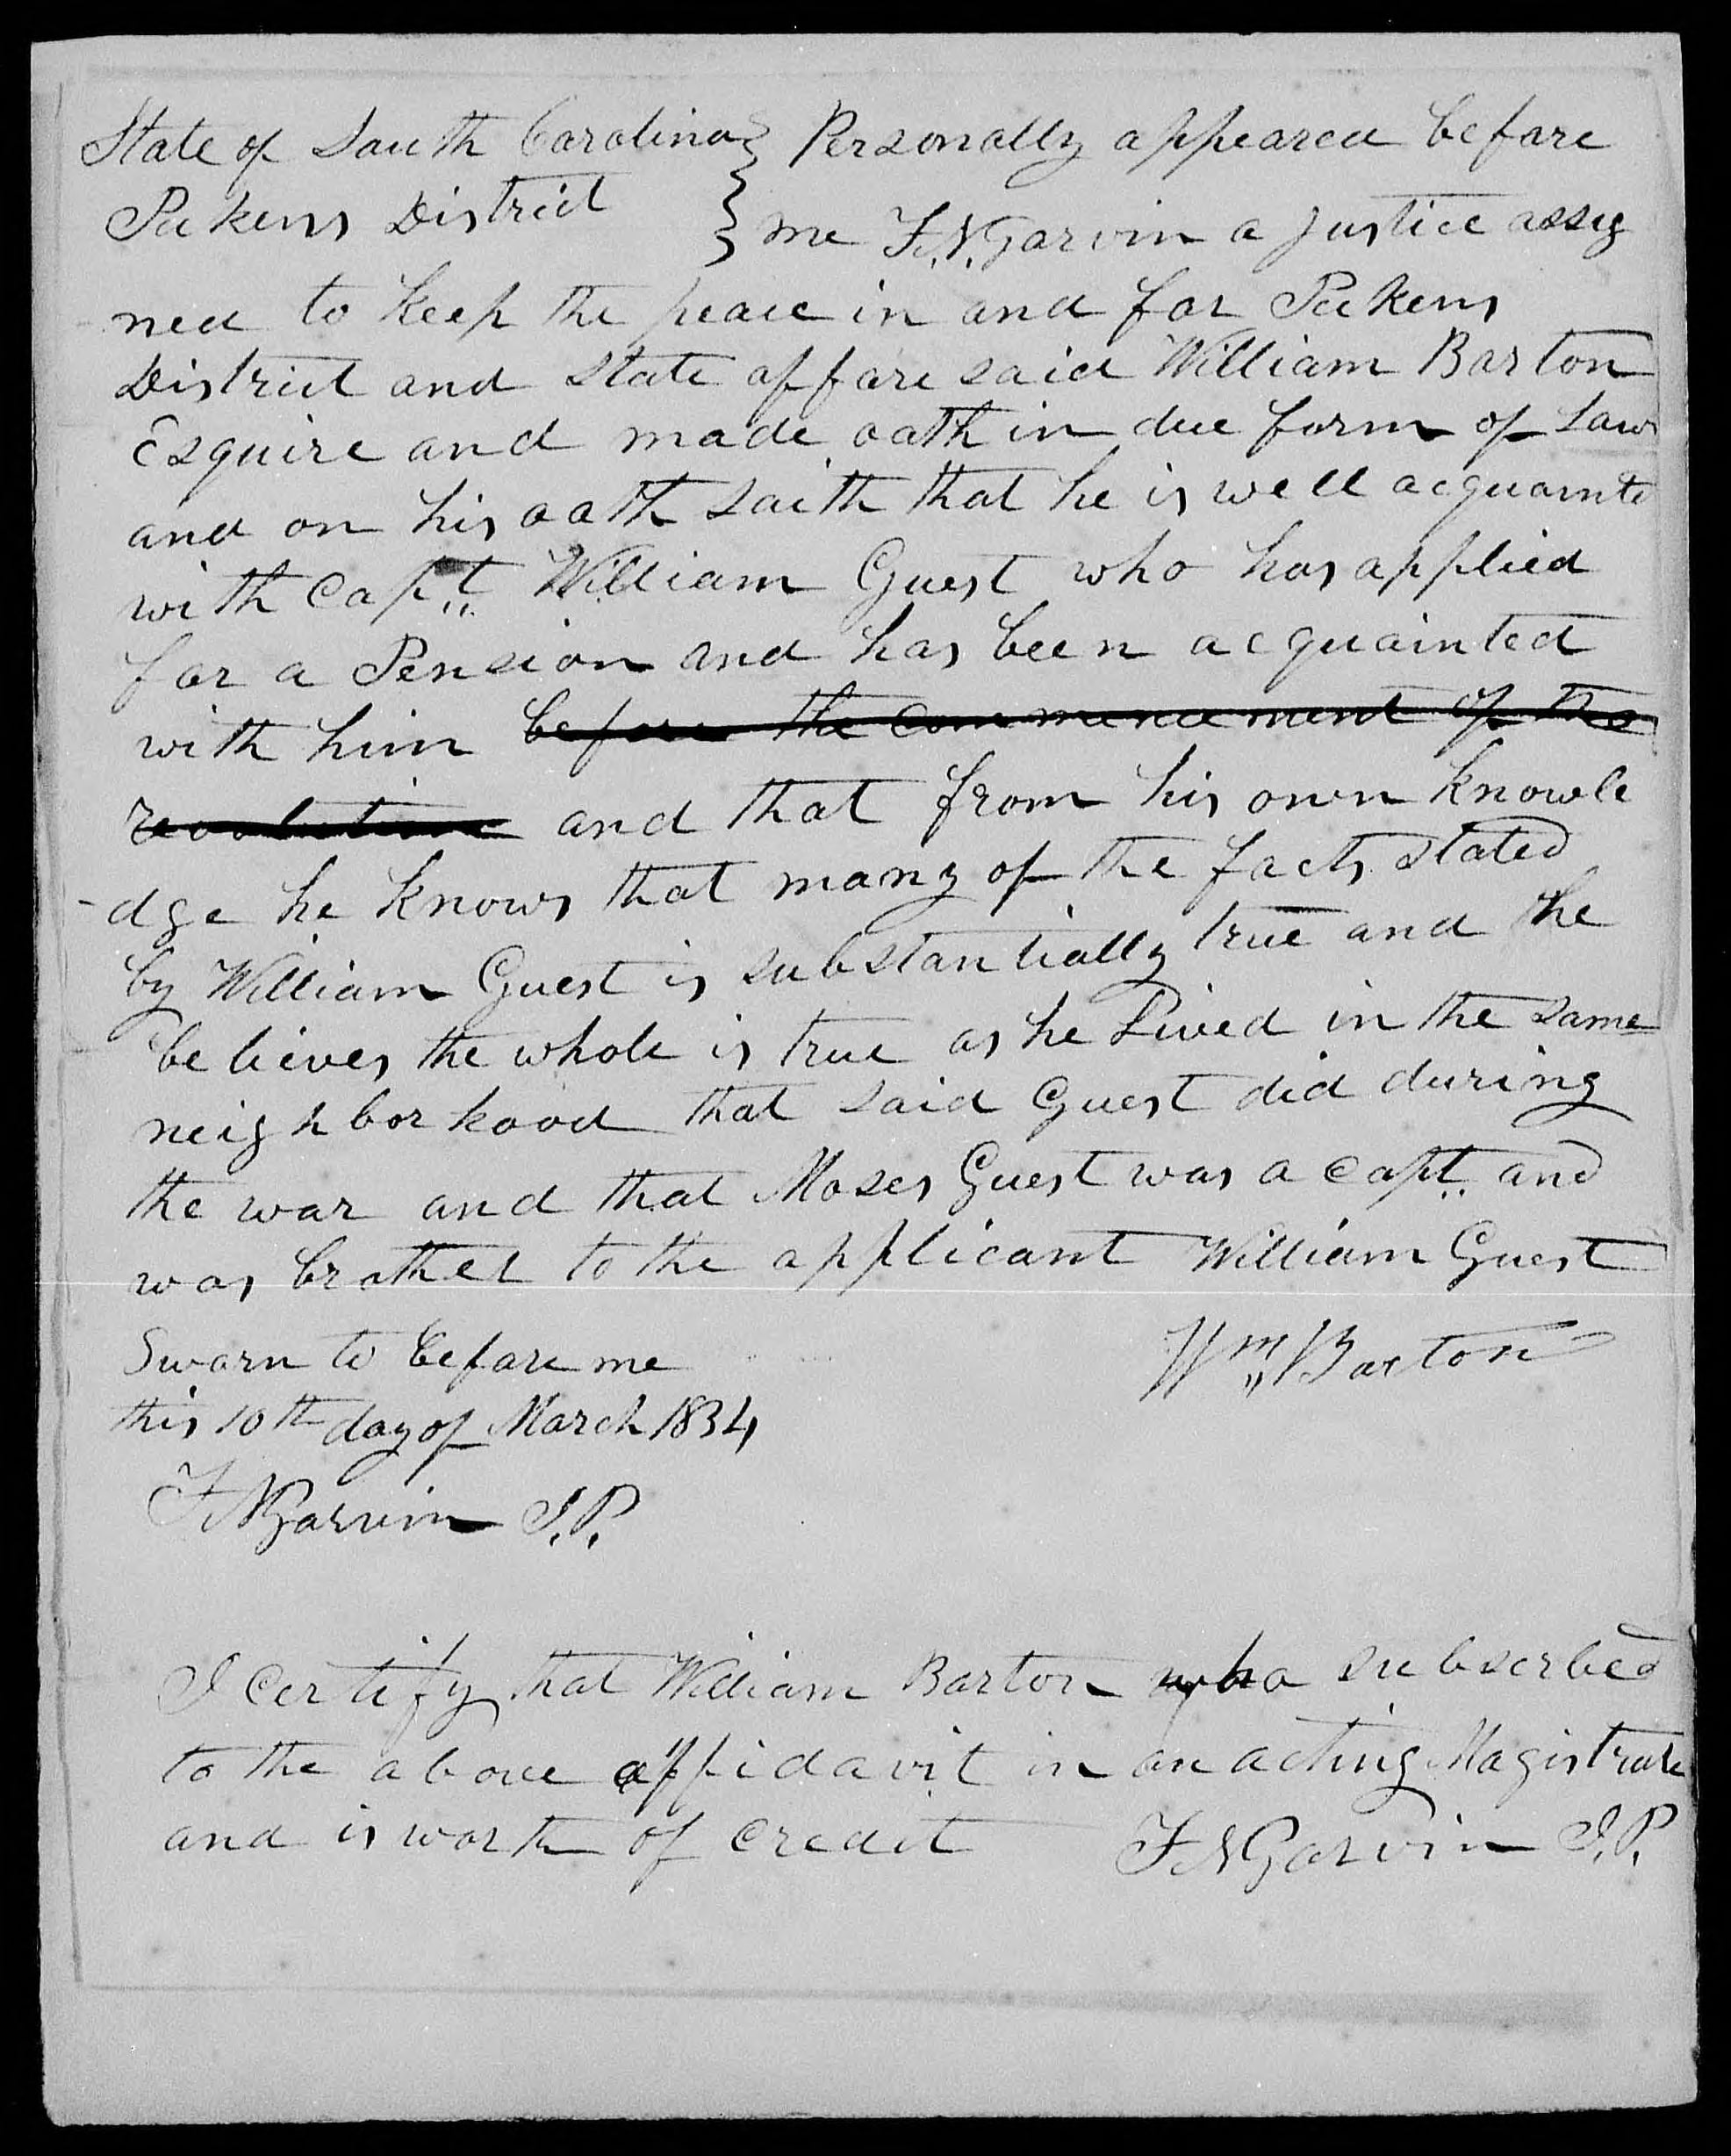 State of South Carolina } Personally appeared before
Pickens District } me F. N. Garvin a justice assig
ned to keep the peace in and for Pickens
District and State afforesaid William Barton
Esquire and made oath in due form of Law
and on his oath saith that he is well acquainte
with Capt William Guest who has applied
for a Pension and has been acquainted
with him before the commencement of the
revolution and that from his own knowle
-dge he knows that many of the facts stated
by William Guest is substantially true and he
believes the whole is true as he Lived in the same
neighborhood that said Guest did during
the war and that Moses Guest was a capt. and
was brother to the applicant William Guest
Sworn to before me Wm Barton
this 10th day of March 1834
F N Garvin J.P.
I Certify that William Barton who subscribed
to the above affidavit in an acting Magistrate
and is worth of credit F N Garvin J.P.